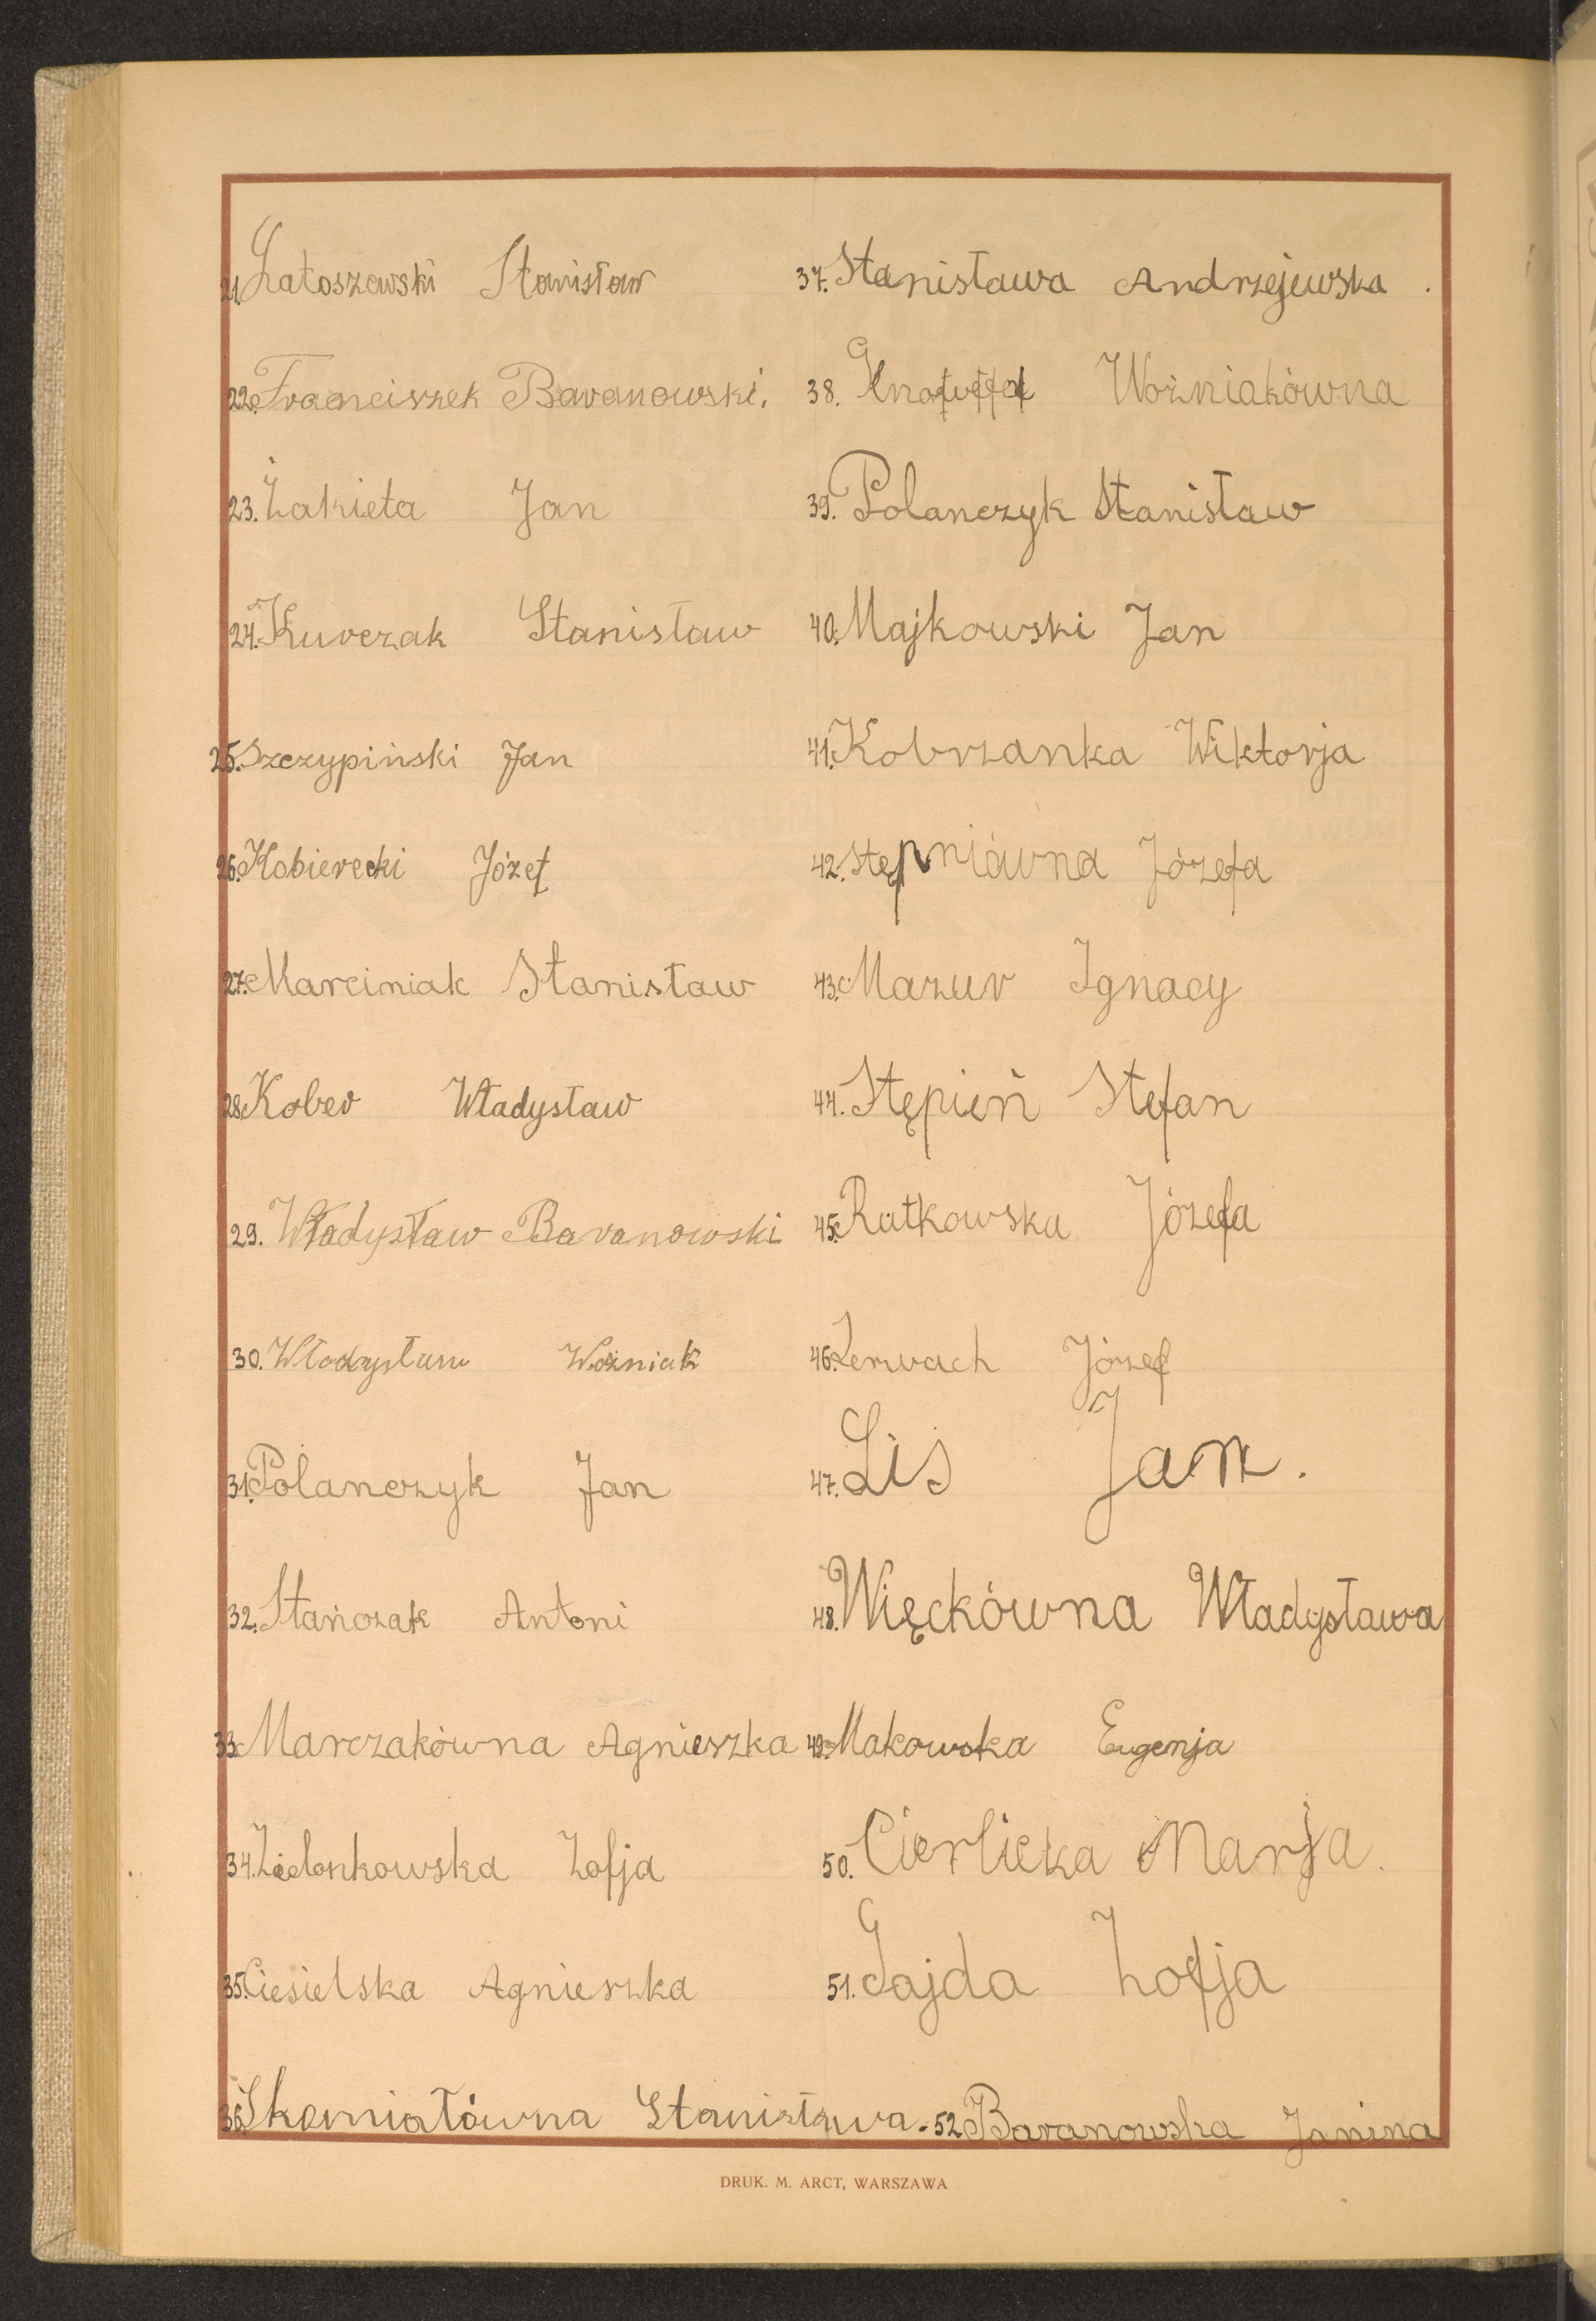 21. Łatoszewski Stanisław
22. Franciszek Baranowski.
23. Żakieta Jan
24. Kurczak Stanisław
25. Szczypiński Jan
26. Kobierecki Józef
27. Marciniak Stanisław
28. Kober Władysław
29. Władysław Baranowski
30. Władysław Woźniak
31. Polanczyk Jan
32. Stańczak Antoni
33. Marczakówna Agnieszka
34. Zielonkowska Zofja
35. Ciesielska Agnieszka
36. Skomiałówna Stanisława.
37. Stanisława Andrzejewska.
38. Woźniakówna
39. Polanczyk Stanisław
40. Majkowski Jan
41. Kobrzanka Wiktorja
42. Stępniówna Józefa
43. Mazur Ignacy
44. Stępień Stefan
45. Rutkowska Józefa
46. Józef
47. Lis Jan.
48. Więckówna Władysława
49. Makowska Eugenja
50. Cierlicka Marja.
51. Gajda Zofja
52. Baranowska Janina
DRUK. M. ARCT, WARSZAWA